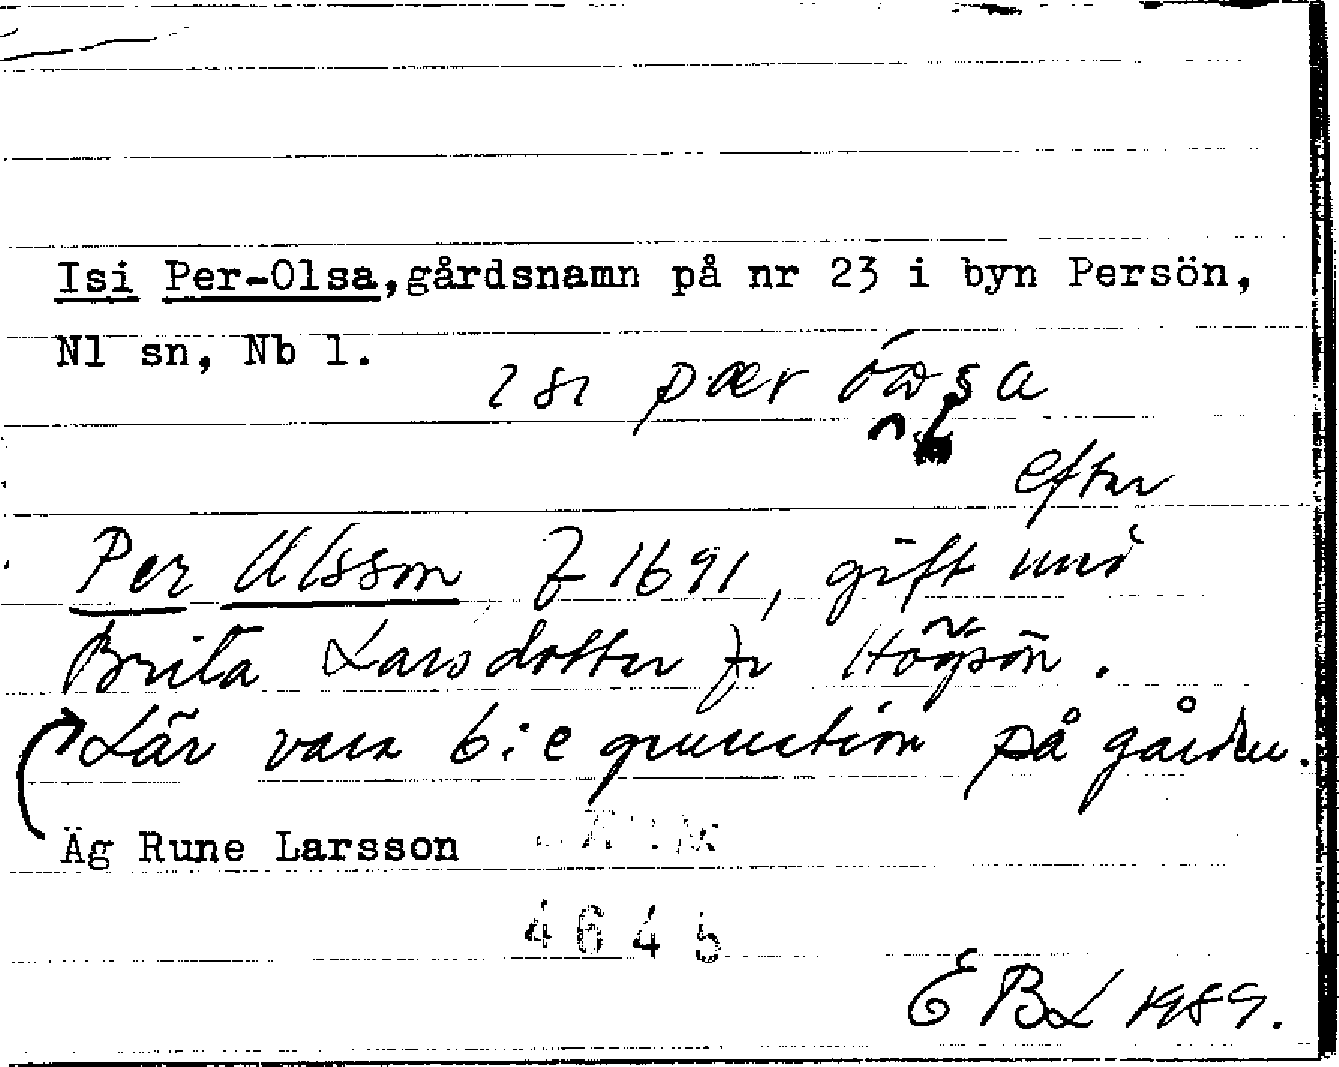 Isi Per-Olsa, gårdsnamn på nr 23 i byn Persön,
Nl sn, Nb l.
isi pær
efter
Per Ulsson, f 1691, gift med
Brita Larsdotter fr Högsön.
Lär vara 6:e generation på gården.
Äg Rune Larsson
4645
EBL 1989.